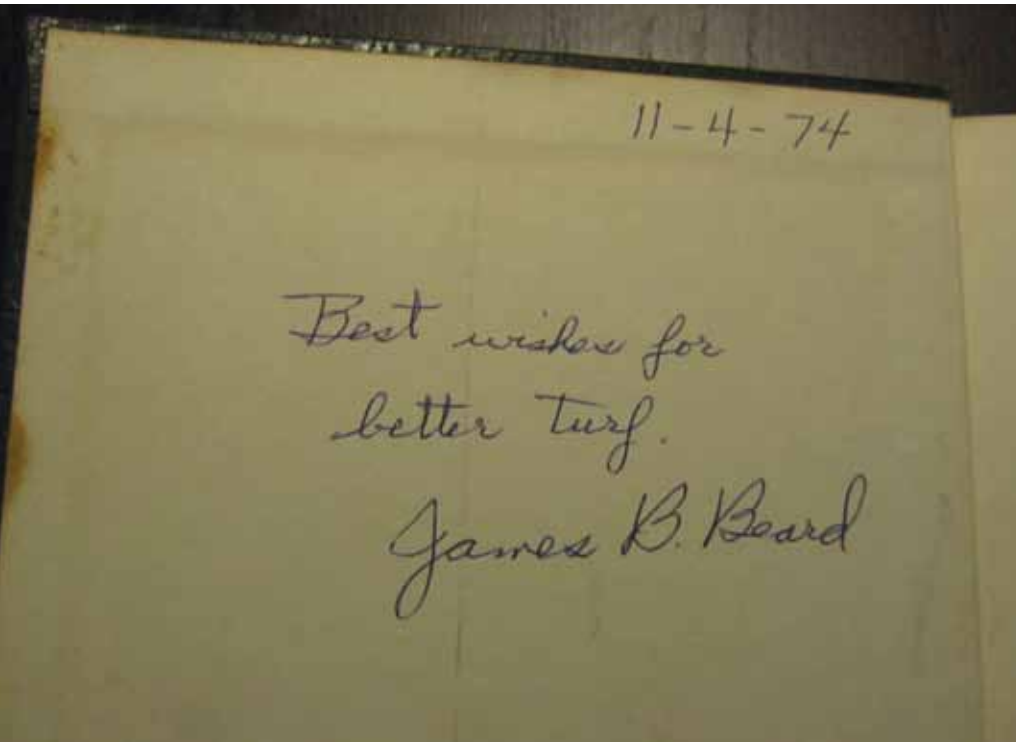 11-4-74
Best wishes for
better turf.
James B. Beard